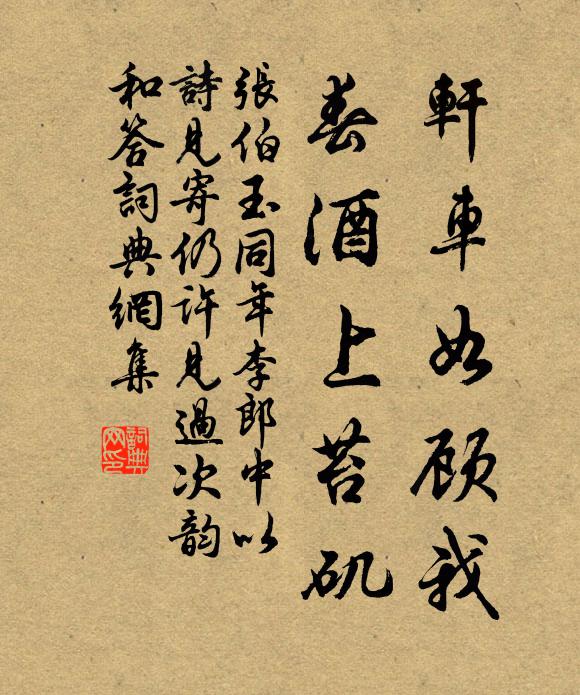 軒車如顾我
春酒上苔矶
張伯玉同年李郎中以
詩見寄仍許見過次韵
和答詞典網集
詞典网印